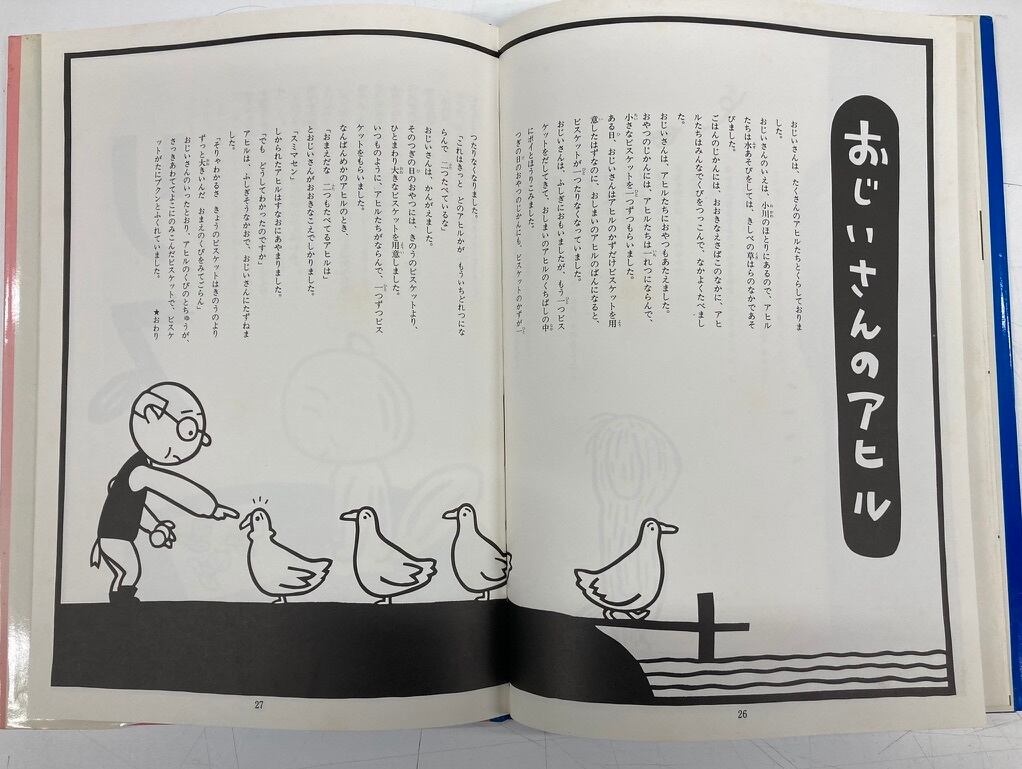 おじいさんのアヒル
おじいさんは、たくさんのアヒルたちとくらしておりま
した。
おじいさんのいえは、小川のほとりにあるので、アヒル
たちは水あそびをしては、きしべの草はらのなかであそ
びました。
ごはんのじかんには、おおきなえさばこのなかに、アヒ
ルたちはみんなでくびをつっこんで、なかよくたべまし
た。
おじいさんは、アヒルたちにおやつもあたえました。
おやつのじかんには、アヒルたちは一れつにならんで、
小さなビスケットを一つずつもらいました。
ある日、おじいさんはアヒルのかずだけビスケットを用
意したはずなのに、おしまいのアヒルのばんになると、
ビスケットが一つたりなくなっていました。
おじいさんは、ふしぎにおもいましたが、もう一つビス
ケットをだしてきて、おしまいのアヒルのくちばしの中
にポイとほうりこみました。
つぎの日のおやつのじかんにも、ビスケットのかずが一
つたりなくなりました。
「これはきっと どのアヒルかが もういちどれつにな
らんで 二つたべているな」
おじいさんは、かんがえました。
そのつぎの日のおやつには、きのうのビスケットより、
ひとまわり大きなビスケットを用意しました。
いつものように、アヒルたちがならんで、一つずつビス
ケットをもらいました。
なんばんめかのアヒルのとき、
「おまえだな 二つもたべてるアヒルは」
とおじいさんがおおきなこえでしかりました。
「スミマセン」
しかられたアヒルはすなおにあやまりました。
「でも どうしてわかったのですか」
アヒルは、ふしぎそうなかおで、おじいさんにたずねま
した。
「そりゃわかるさ きょうのビスケットはきのうのより
ずっと大きいんだ おまえのくびをみてごらん」
おじいさんのいったとおり、アヒルのくびのとちゅうが、
さっきあわててよこにのみこんだビスケットで、ビスケ
ットがたにプクンとふくれていました。 ★おわり
27
26